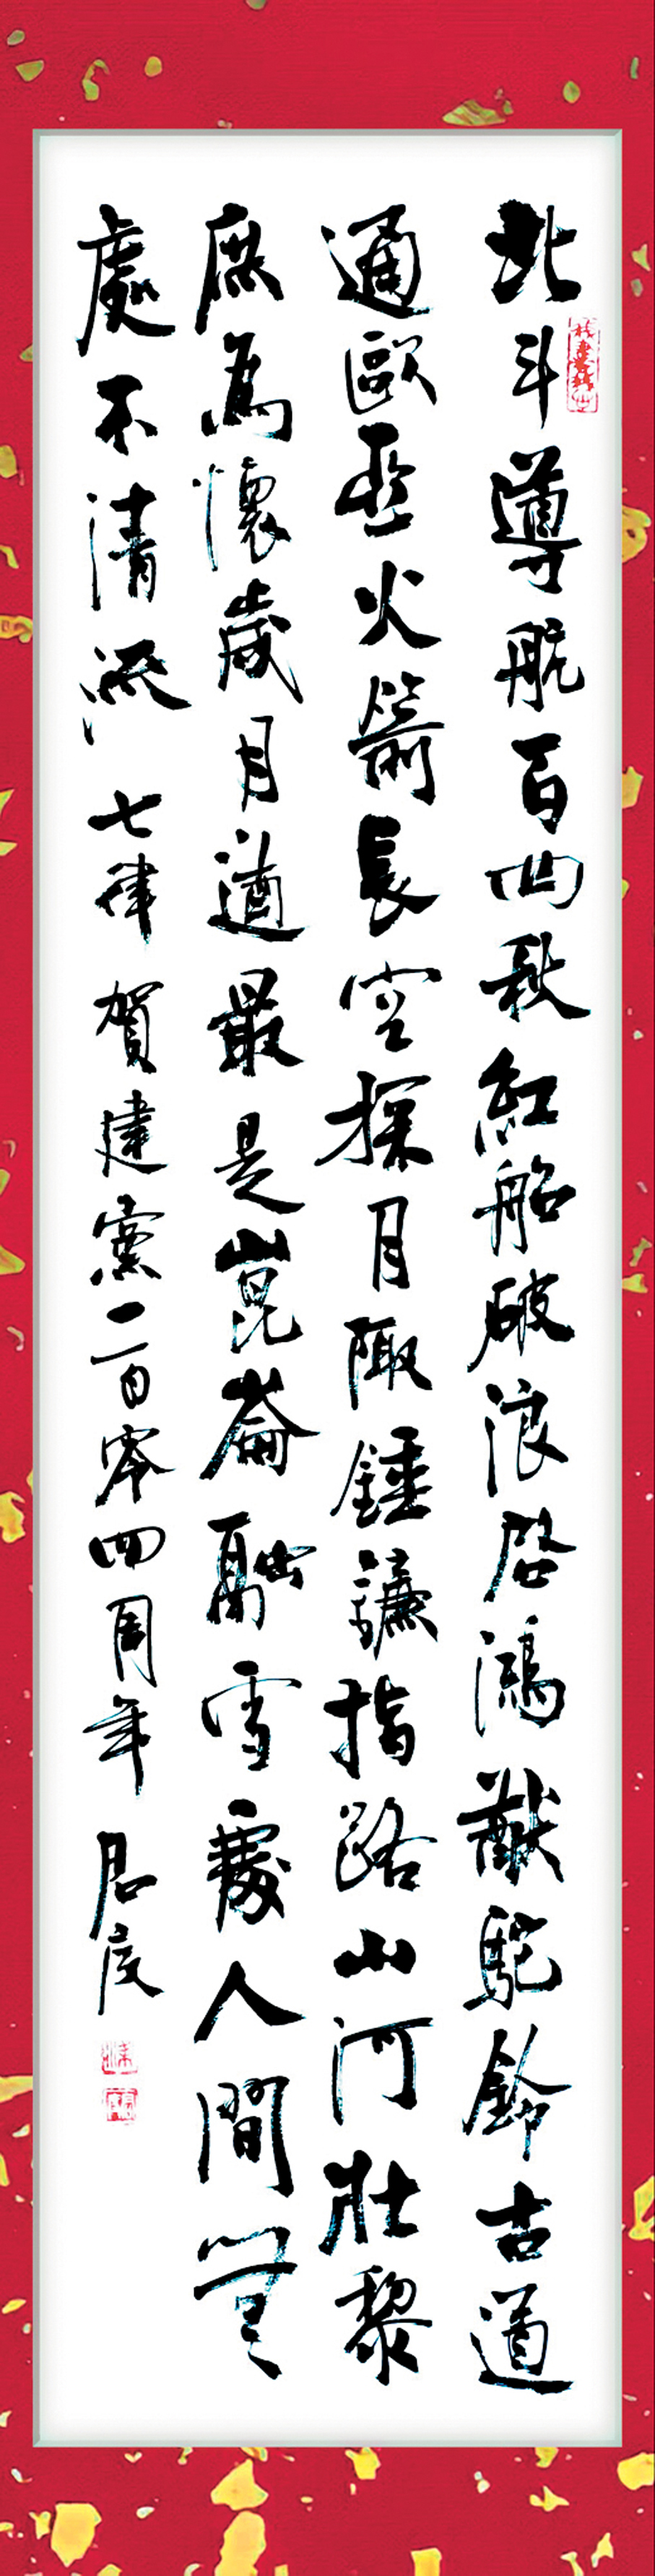 北斗導航百四秋紅船破浪啓鴻猷駝鈴古道
通歐亞火箭長空探月陬錘鐮指路山河壯黎
庶為懷歲月遒最是崑崙融雪處人間無
處不清流 七律 賀建黨一百零四周年